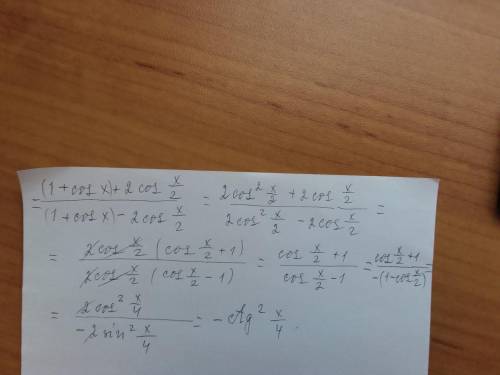 = ((1 + cos x) + 2 cos x/2) / ((1 + cos x) - 2 cos x/2) = (2 cos² x/2 + 2 cos x/2) / (2 cos² x/2 - 2 cos x/2) =
= (2 cos x/2 (cos x/2 + 1)) / (2 cos x/2 (cos x/2 - 1)) = (cos x/2 + 1) / (cos x/2 - 1) = (cos x/2 + 1) / (-(1 - cos x/2)) =
= (2 cos² x/4) / (-2 sin² x/4) = - ctg² x/4 .